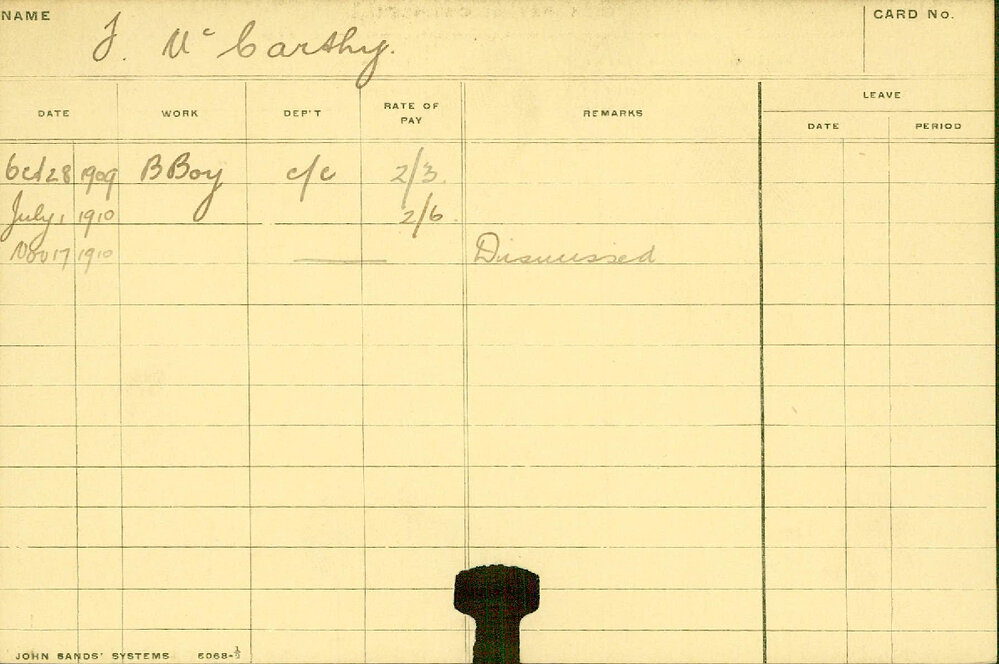 NAME
CARD No.
J. McCarthy.
LEAVE
DATE WORK DEP'T RATE OF PAY REMARKS DATE PERIOD
Oct 28 1909 B Boy c/c 2/3.
July 1 1910 2/6.
Nov 17 1910 —— Dismissed
JOHN SANDS' SYSTEMS 6068-½